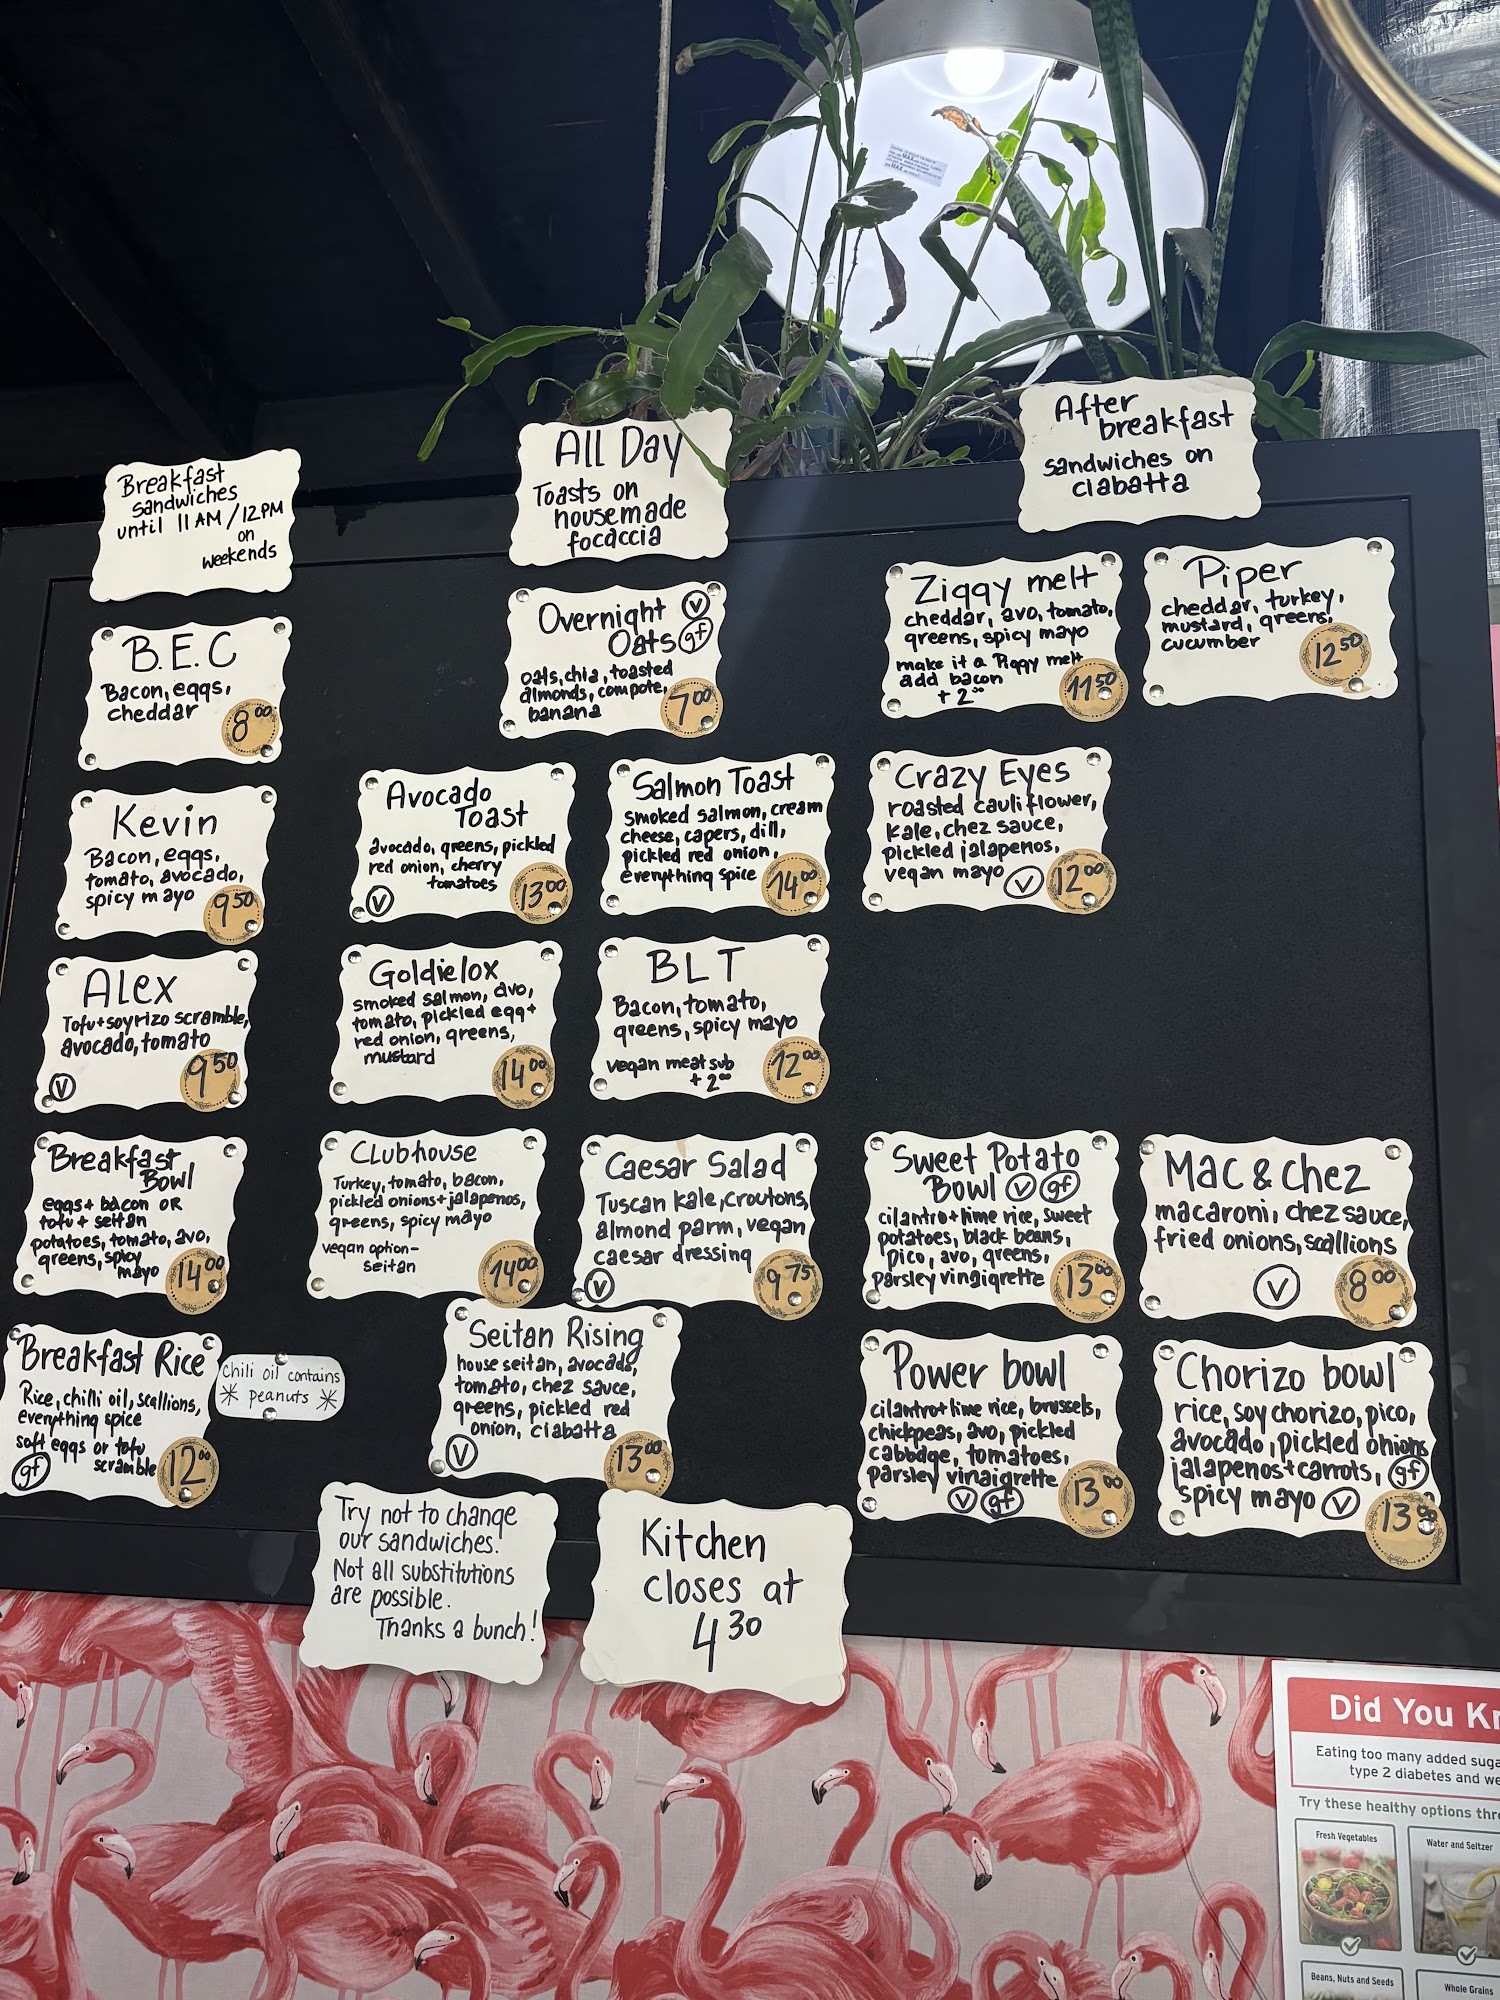 Breakfast
sandwiches
until 11 AM / 12 PM
on
weekends
B.E.C
Bacon, eggs,
cheddar
8⁰⁰
Kevin
Bacon, eggs,
tomato, avocado,
spicy mayo
9⁵⁰
Alex
Tofu + soyrizo scramble,
avocado, tomato
V
9⁵⁰
Breakfast
Bowl
eggs + bacon OR
tofu + seitan
potatoes, tomato, avo,
greens, spicy
mayo
14⁰⁰
Breakfast Rice
Rice, chilli oil, scallions,
everything spice
soft eggs or tofu
scramble
gf
12⁰⁰
chili oil contains
* peanuts *
All Day
Toasts on
housemade
focaccia
Overnight
Oats
V
gf
oats, chia, toasted
almonds, compote,
banana
7⁰⁰
Avocado
Toast
avocado, greens, pickled
red onion, cherry
tomatoes
V
13⁰⁰
Salmon Toast
smoked salmon, cream
cheese, capers, dill,
pickled red onion,
everything spice
14⁰⁰
Goldielox
smoked salmon, avo,
tomato, pickled egg +
red onion, greens,
mustard
14⁰⁰
BLT
Bacon, tomato,
greens, spicy mayo
vegan meat sub
+ 2⁰⁰
12⁰⁰
Clubhouse
Turkey, tomato, bacon,
pickled onions + jalapenos,
greens, spicy mayo
vegan option -
seitan
14⁰⁰
Caesar Salad
Tuscan kale, croutons,
almond parm, vegan
caesar dressing
V
9⁷⁵
Seitan Rising
house seitan, avocado,
tomato, chez sauce,
greens, pickled red
onion, ciabatta
V
13⁰⁰
Try not to change
our sandwiches.
Not all substitutions
are possible.
Thanks a bunch!
Kitchen
closes at
4³⁰
After
breakfast
sandwiches on
ciabatta
Ziggy melt
cheddar, avo, tomato,
greens, spicy mayo
make it a Piggy melt
add bacon
+ 2⁰⁰
11⁵⁰
Piper
cheddar, turkey,
mustard, greens,
cucumber
12⁵⁰
Crazy Eyes
roasted cauliflower,
kale, chez sauce,
pickled jalapenos,
vegan mayo V
12⁰⁰
Sweet Potato
Bowl V gf
cilantro + lime rice, sweet
potatoes, black beans,
pico, avo, greens,
parsley vinaigrette
13⁰⁰
Mac & Chez
macaroni, chez sauce,
fried onions, scallions
V
8⁰⁰
Power bowl
cilantro + lime rice, brussels,
chickpeas, avo, pickled
cabbage, tomatoes,
parsley vinaigrette
V gf
13⁰⁰
Chorizo bowl
rice, soy chorizo, pico,
avocado, pickled onions
jalapenos + carrots, gf
spicy mayo V
13⁰⁰
Did You Kn
Eating too many added suga
type 2 diabetes and we
Try these healthy options thro
Fresh Vegetables
Water and Seltzer
Beans, Nuts and Seeds
Whole Grains